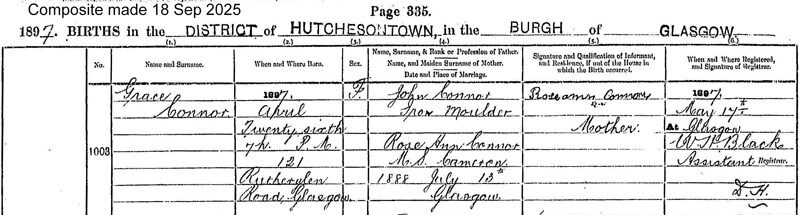 Composite made 18 Sep 2025
Page 335.
1897. BIRTHS in the DISTRICT of HUTCHESONTOWN, in the BURGH of GLASGOW
(1.) (2.) (3.) (4.) (5.) (6.)
No. Name and Surname. When and Where Born. Sex. Name, Surname, & Rank or Profession of Father. Name, and Maiden Surname of Mother. Date and Place of Marriage. Signature and Qualification of Informant, and Residence, if out of the House in which the Birth occurred. When and Where Registered, and Signature of Registrar.
1003
Grace
Connor
1897.
April
Twenty sixth
7h. P.M.
121
Rutherglen
Road, Glasgow
F.
John Connor
Iron Moulder
Rose Ann Connor
M.S. Cameron
1888 July 13th
Glasgow
Roseannn Connor
Mother.
1897
May 17th
At Glasgow
Wm. Black
Assistant Registrar.
D. H.